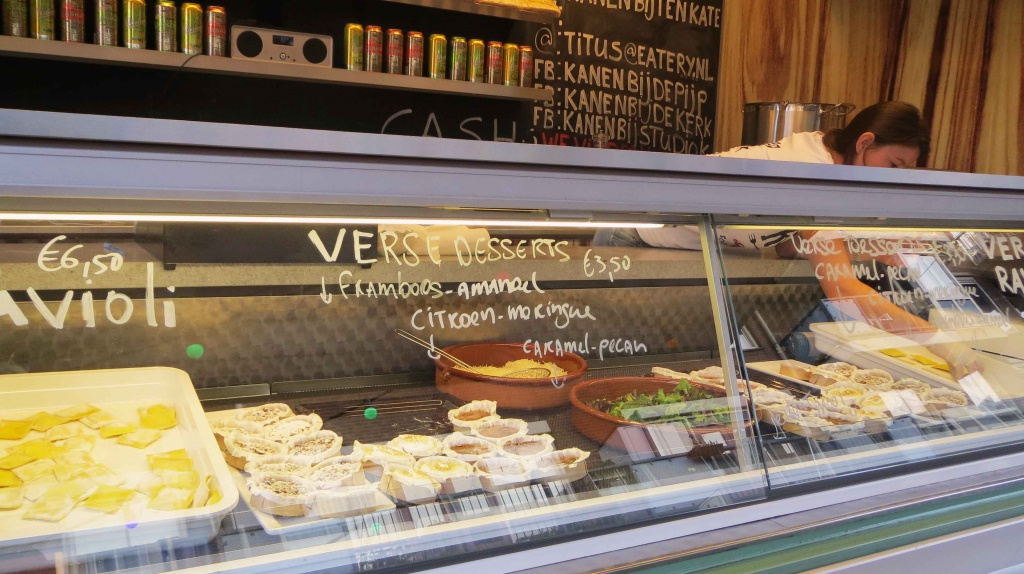 KANEN BIJ TEN KATE
@: TITUS@EATERY.NL
FB: KANEN BIJ DE PIJP
FB: KANEN BIJ DE KERK
FB: KANEN BIJ STUDIO K
CASH
€6,50
AVIOLI
VERSE DESSERTS
€3,50
↓ FRAMBOOS-AMANDEL
CITROEN-MERINGUE
CARAMEL-PECAN
VERSE DESSERTS
CARAMEL-PECAN
CITROEN-
VERS
RA